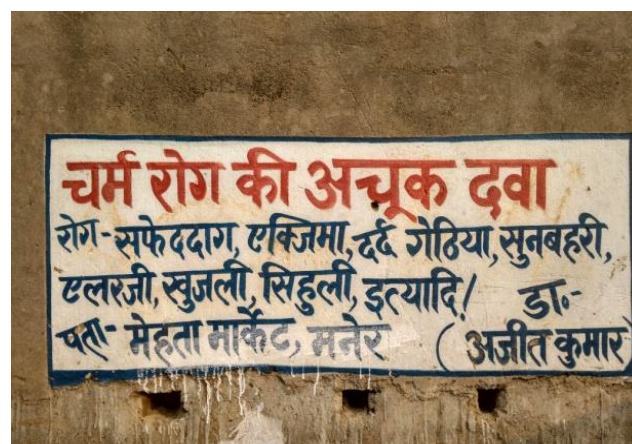 चर्म रोग की अचूक दवा
रोग-सफेददाग, एक्जिमा, दर्द गेठिया, सुनबहरी,
एलरजी, खुजली, सिहुली, इत्यादि! डा॰-
पता- मेहता मार्केट, मनेर (अजीत कुमार)